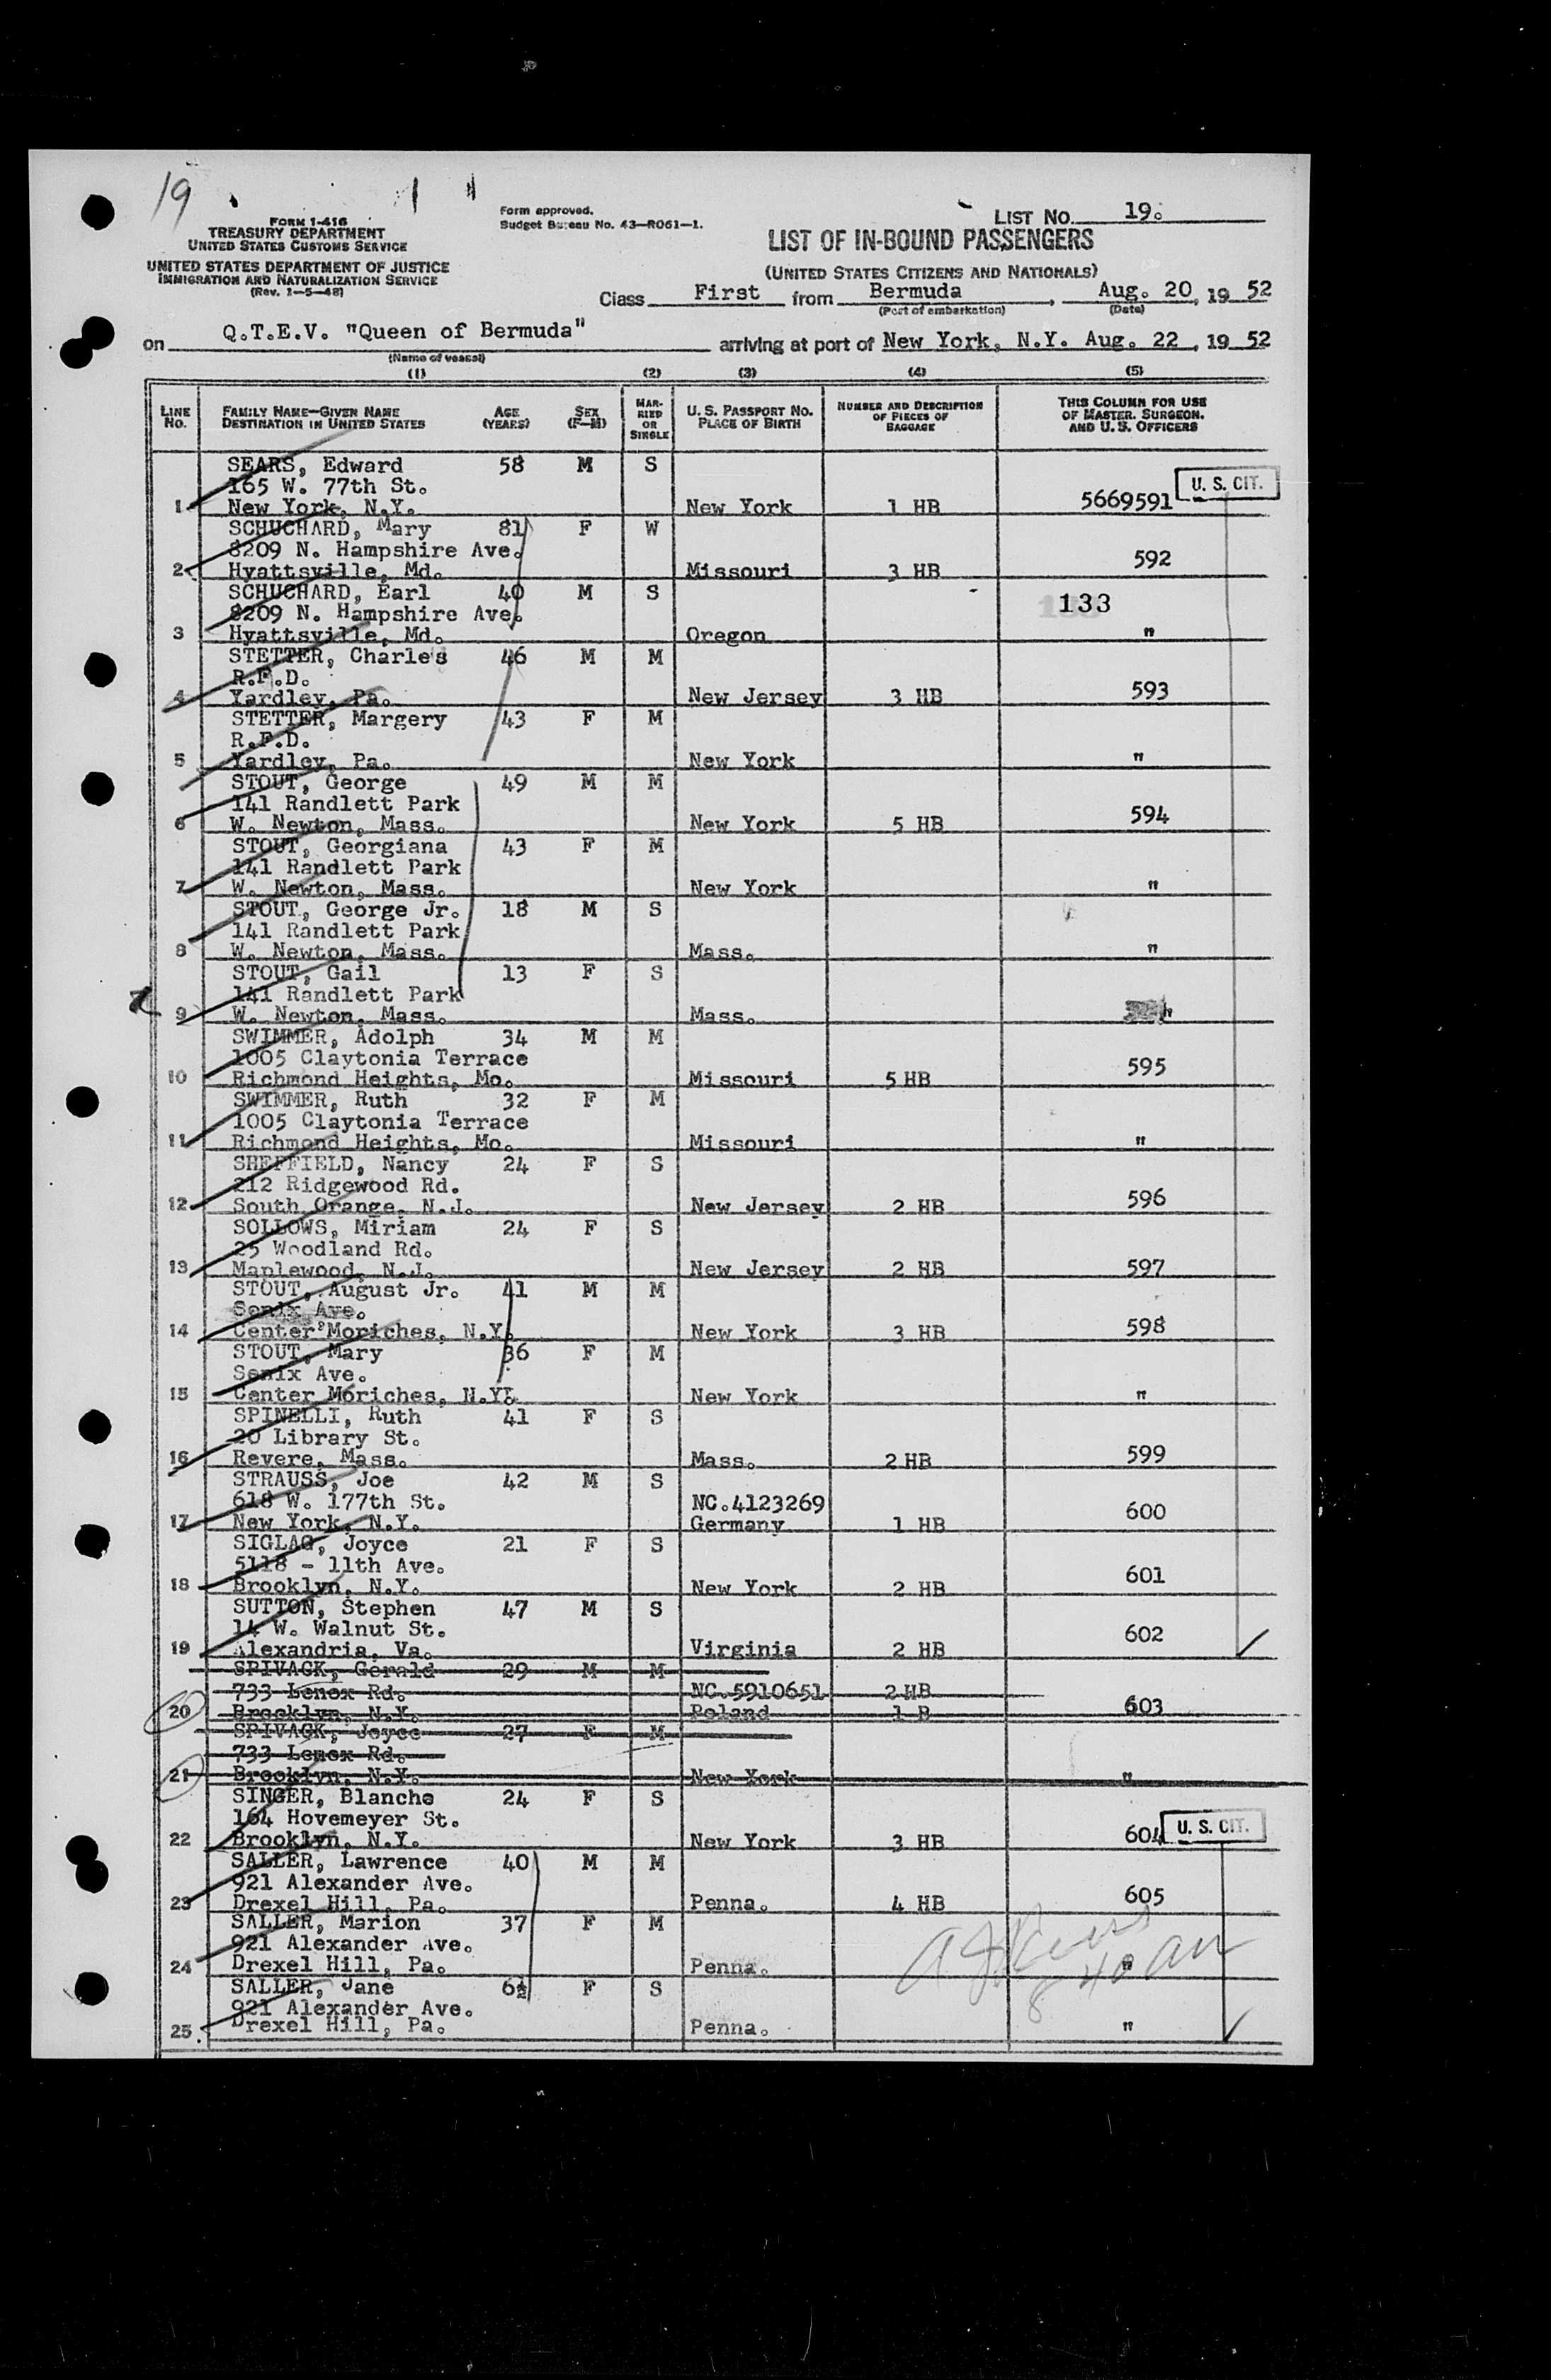 19
FORM I-416
TREASURY DEPARTMENT
UNITED STATES CUSTOMS SERVICE
UNITED STATES DEPARTMENT OF JUSTICE
IMMIGRATION AND NATURALIZATION SERVICE
(Rev. 1-5-48)
Form approved.
Budget Bureau No. 43—R061—1.
LIST NO. 19.
LIST OF IN-BOUND PASSENGERS
(UNITED STATES CITIZENS AND NATIONALS)
Class First from Bermuda, Aug. 20, 19 52
(Port of embarkation) (Date)
on Q.T.E.V. "Queen of Bermuda" arriving at port of New York, N.Y. Aug. 22, 19 52
(Name of vessel)
(1) (2) (3) (4) (5)
LINE NO. FAMILY NAME—GIVEN NAME DESTINATION IN UNITED STATES AGE (YEARS) SEX (F—M) MARRIED OR SINGLE U. S. PASSPORT NO. PLACE OF BIRTH NUMBER AND DESCRIPTION OF PIECES OF BAGGAGE THIS COLUMN FOR USE OF MASTER, SURGEON, AND U. S. OFFICERS
SEARS, Edward 58 M S
165 W. 77th St. U. S. CIT.
1 New York, N.Y. New York 1 HB 5669591
SCHUCHARD, Mary 81 F W
8209 N. Hampshire Ave.
2 Hyattsville, Md. Missouri 3 HB 592
SCHUCHARD, Earl 40 M S
8209 N. Hampshire Ave. 133
3 Hyattsville, Md. Oregon "
STETTER, Charles 46 M M
R.F.D.
4 Yardley, Pa. New Jersey 3 HB 593
STETTER, Margery 43 F M
R.F.D.
5 Yardley, Pa. New York "
STOUT, George 49 M M
141 Randlett Park
6 W. Newton, Mass. New York 5 HB 594
STOUT, Georgiana 43 F M
141 Randlett Park
7 W. Newton, Mass. New York "
STOUT, George Jr. 18 M S
141 Randlett Park
8 W. Newton, Mass. Mass. "
STOUT, Gail 13 F S
141 Randlett Park
9 W. Newton, Mass. Mass. "
SWIMMER, Adolph 34 M M
1005 Claytonia Terrace
10 Richmond Heights, Mo. Missouri 5 HB 595
SWIMMER, Ruth 32 F M
1005 Claytonia Terrace
11 Richmond Heights, Mo. Missouri "
SHEFFIELD, Nancy 24 F S
212 Ridgewood Rd.
12 South Orange, N.J. New Jersey 2 HB 596
SOLLOWS, Miriam 24 F S
25 Woodland Rd.
13 Maplewood, N.J. New Jersey 2 HB 597
STOUT, August Jr. 41 M M
Senix Ave.
14 Center Moriches, N.Y. New York 3 HB 598
STOUT, Mary 36 F M
Senix Ave.
15 Center Moriches, N.Y. New York "
SPINELLI, Ruth 41 F S
20 Library St.
16 Revere, Mass. Mass. 2 HB 599
STRAUSS, Joe 42 M S
618 W. 177th St. NC.4123269
17 New York, N.Y. Germany 1 HB 600
SIGLAG, Joyce 21 F S
5118 - 11th Ave.
18 Brooklyn, N.Y. New York 2 HB 601
SUTTON, Stephen 47 M S
14 W. Walnut St.
19 Alexandria, Va. Virginia 2 HB 602
SPIVACK, Gerald 29 M M
733 Lenox Rd. NC.5910651 2 HB
20 Brooklyn, N.Y. Poland 1 B 603
SPIVACK, Joyce 27 F M
733 Lenox Rd.
21 Brooklyn, N.Y. New York "
SINGER, Blanche 24 F S
164 Hovemeyer St. U. S. CIT.
22 Brooklyn, N.Y. New York 3 HB 604
SALLER, Lawrence 40 M M
921 Alexander Ave.
23 Drexel Hill, Pa. Penna. 4 HB 605
SALLER, Marion 37 F M
921 Alexander Ave.
24 Drexel Hill, Pa. Penna. "
SALLER, Jane 6½ F S
921 Alexander Ave.
25. Drexel Hill, Pa. Penna. "